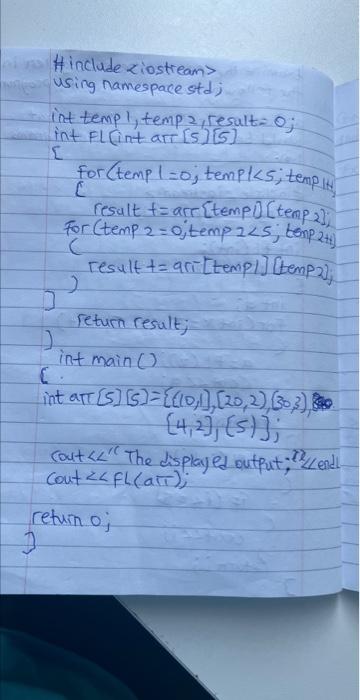 #include <iostream>
using namespace std;
int temp1, temp2, result= 0;
int FL(int arr [5][5]
{
for(temp1=0; temp1<5; temp1++)
{
result += arr[temp1][temp2];
for (temp2=0; temp2<5; temp2++)
{
result += arr[temp1][temp2];
}
}
return result;
}
int main()
{
int arr [5][5]={{10,1},{20,2},{30,3},
{4,2},{5}};
cout<<" The displayed output;"<<endl
cout<<FL(arr);
return 0;
}